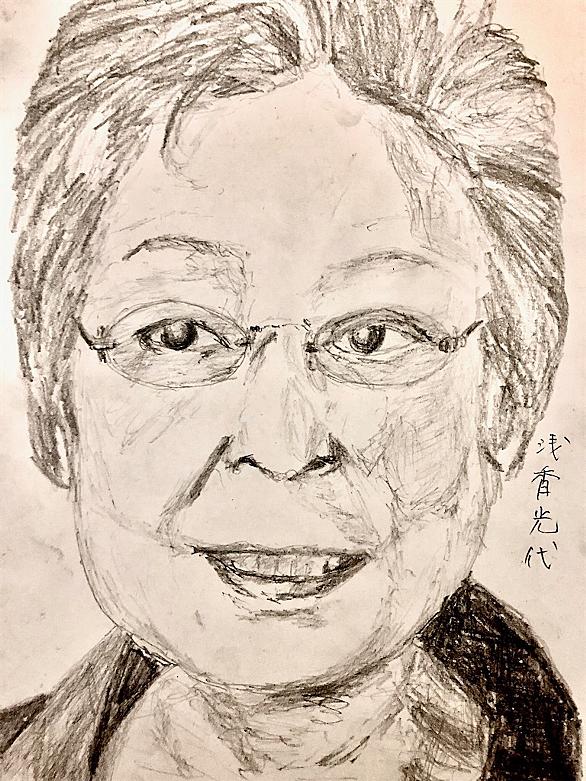 浅香光代